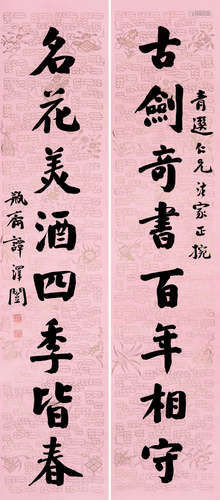 青選仁兄法家正捥
古劍奇書百年相守
名花美酒四季皆春
瓶齋譚澤闓